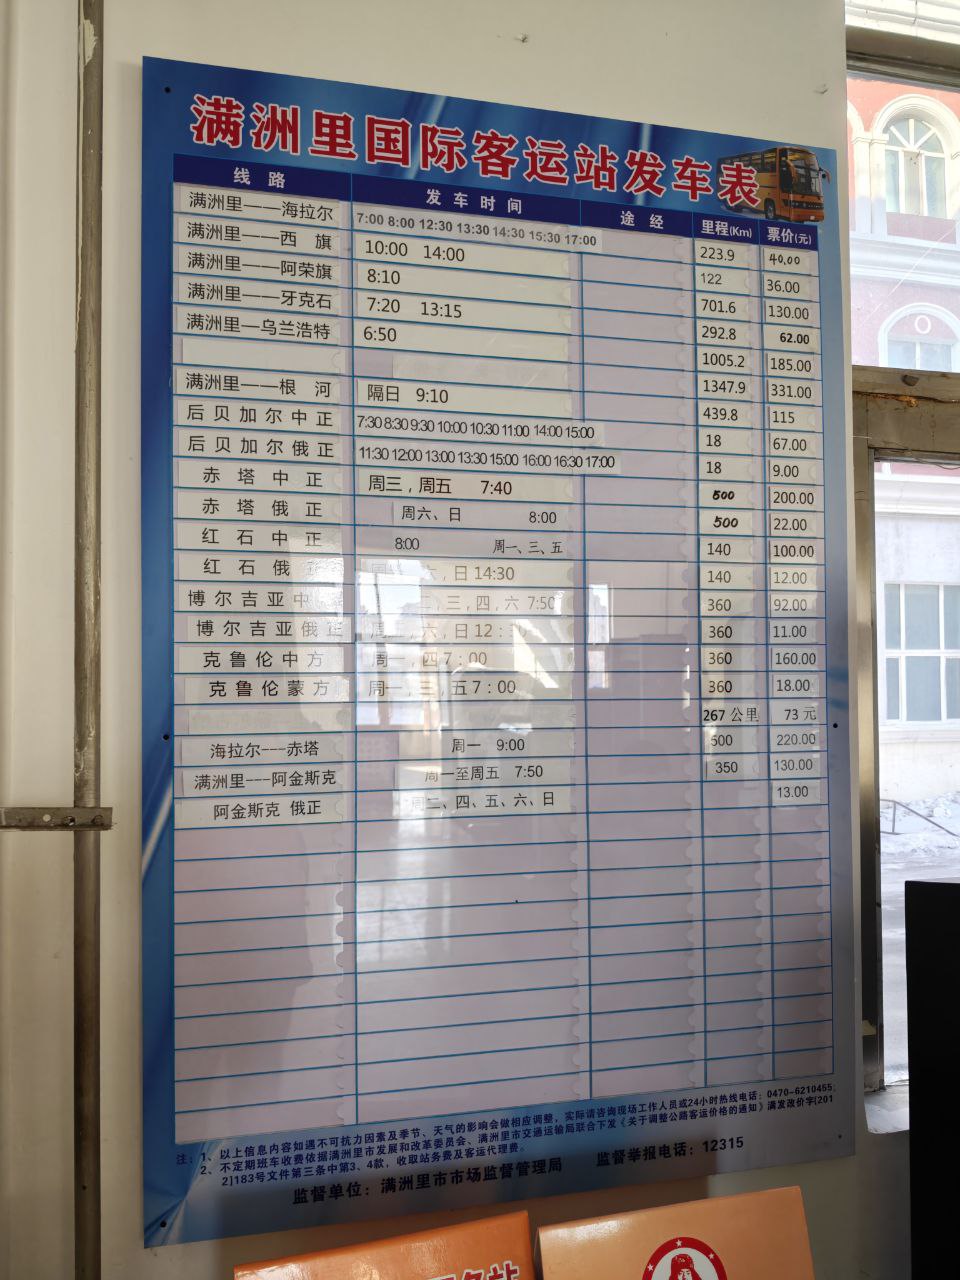 满洲里国际客运站发车表
线路 发车时间 途经 里程(Km) 票价(元)
满洲里——海拉尔 7:00 8:00 12:30 13:30 14:30 15:30 17:00 223.9 40.00
满洲里——西 旗 10:00 14:00 122 36.00
满洲里——阿荣旗 8:10 701.6 130.00
满洲里——牙克石 7:20 13:15 292.8 62.00
满洲里—乌兰浩特 6:50 1005.2 185.00
1347.9 331.00
满洲里——根 河 隔日 9:10 439.8 115
后贝加尔中正 7:30 8:30 9:30 10:00 10:30 11:00 14:00 15:00 18 67.00
后贝加尔俄正 11:30 12:00 13:00 13:30 15:00 16:00 16:30 17:00 18 9.00
赤塔中正 周三，周五 7:40 500 200.00
赤塔俄正 周六、日 8:00 500 22.00
红石中正 8:00 周一、三、五 140 100.00
红石俄 ，日 14:30 140 12.00
博尔吉亚中 二，三，四，六 7:50 360 92.00
博尔吉亚俄正 ，六，日 12： 360 11.00
克鲁伦中方 周一，四 7：00 360 160.00
克鲁伦蒙方 周一，三，五 7：00 360 18.00
267 公里 73 元
海拉尔—赤塔 周一 9:00 500 220.00
满洲里---阿金斯克 周一至周五 7:50 350 130.00
阿金斯克 俄正 周二、四、五、六、日 13.00
注：1、以上信息内容如遇不可抗力因素及季节、天气的影响会做相应调整，实际请咨询现场工作人员或24小时热线电话：0470-6210455；
2、不定期班车收费依据满洲里市发展和改革委员会、满洲里市交通运输局联合下发《关于调整公路客运价格的通知》满发改价字[201
2]183号文件第三条中第3、4款，收取站务费及客运代理费。
监督单位：满洲里市市场监督管理局 监督举报电话：12315